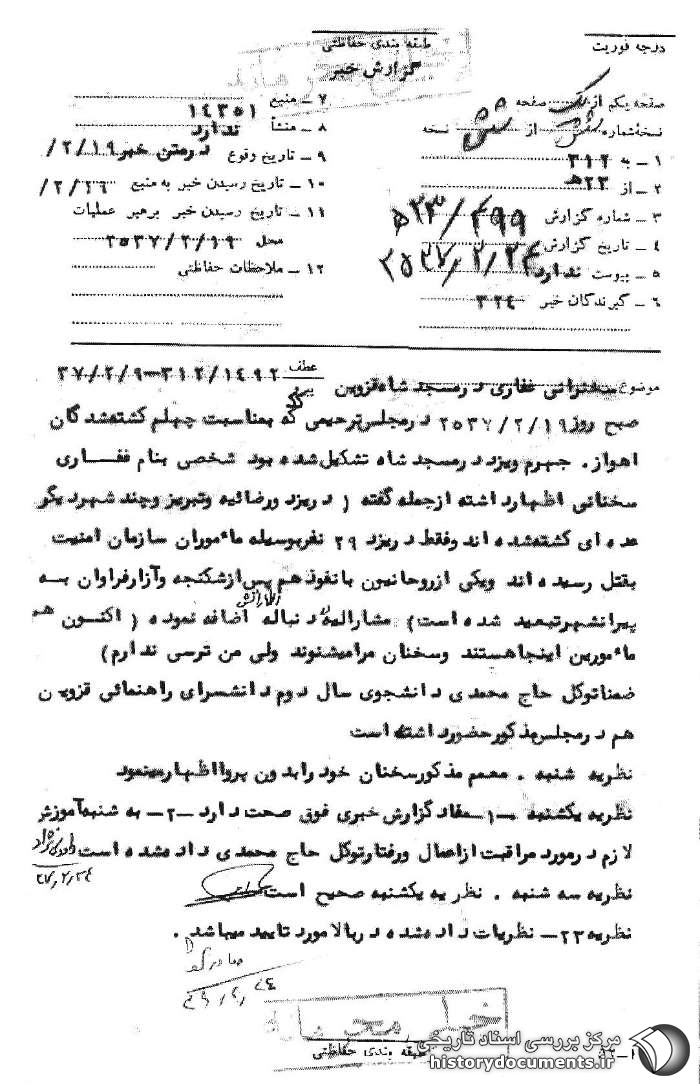 درجه فوریت
طبقه بندی حفاظتی
گزارش خبر
صفحه یکم از یک صفحه
نسخه شماره شش از شش نسخه
۱ – به ۳۱۲
۲ – از ۲۳ھ
۳ – شماره گزارش ۵۲۳/۲۹۹
۴ – تاریخ گزارش ۲۵۳۷/۲/۲۴
۵ – پیوست ندارد
۶ – گیرندگان خبر ۳۲۴
۷ – منبع ۱۴۳۵۱
۸ – منشأ ندارد
۹ – تاریخ وقوع درمتن خبر ۲/۱۹/
۱۰ – تاریخ رسیدن خبر به منبع ۲/۱۹/
۱۱ – تاریخ رسیدن خبر برهبر عملیات
محل ۲۵۳۷/۲/۱۹
۱۲ – ملاحظات حفاظتی
موضوع سخنرانی غفاری درمسجد شاه قزوین عطف ۳۱۲/۱۴۹۲–۳۷/۲/۹
صبح روز ۲۵۳۷/۲/۱۹ درمجلس ترحیمی که بمناسبت چهلم کشته شدگان
اهواز . جهرم ویزد درمسجد شاه تشکیل شده بود شخصی بنام غفاری
سخنانی اظهارداشته ازجمله گفته ( دریزد ورضائیه وتبریز وچند شهردیگر
عده ای کشته شده اند وفقط دریزد ۲۹ نفربوسیله مأموران سازمان امنیت
بقتل رسیده اند ویکی ازروحانیون بانفوذ هم پس ازشکنجه وآزارفراوان به
پیرانشهرتبعید شده است) مشارالیه دنباله اظهاراتش اضافه نموده ( اکنون هم
مأمورین اینجاهستند وسخنان مرامیشنوند ولی من ترسی ندارم)
ضمناتوکل حاج محمدی دانشجوی سال دوم دانشسرای راهنمائی قزوین
هم درمجلس مذکورحضورداشته است
نظریه شنبه . معمم مذکورسخنان خودرابدون پروااظهارمینمود
نظریه یکشنبه –۱– مفاد گزارش خبری فوق صحت دارد –۲– به شنبه آموزش
لازم درمورد مراقبت ازاعمال ورفتارتوکل حاج محمدی داده شده است
نظریه سه شنبه . نظریه یکشنبه صحیح است
نظریه ۲۳– نظریات داده شده دربالامورد تایید میباشد .
طبقه بندی حفاظتی
مرکز بررسی اسناد تاریخی
historydocuments.ir